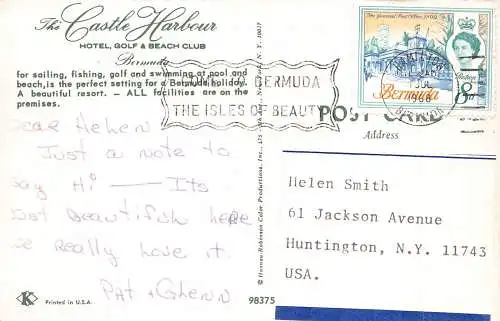 The Castle Harbour
HOTEL, GOLF & BEACH CLUB
Bermuda
for sailing, fishing, golf and swimming at pool and
beach, is the perfect setting for a Bermuda holiday.
A beautiful resort. — ALL facilities are on the
premises.
COME TO BERMUDA
THE ISLES OF BEAUTY
The General Post Office
Postage
8d
Bermuda
1968
POST CARD
Address
Dear Helen
Just a note to
say Hi — Its
just beautiful here
we really love it.
Pat + Glenn
Helen Smith
61 Jackson Avenue
Huntington, N.Y. 11743
USA.
K
Printed in U.S.A.
98375